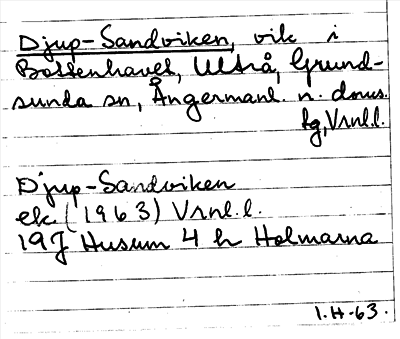 Djup-Sandviken, vik i
Bottenhavet, Ultrå, Grund-
sunda sn, Ångermanl. n. dmus.
fg, Vrnl.l.
Djup-Sandviken
ek (1963) Vrnl.l.
19J Husum 4 h Holmarna
1.H-63.